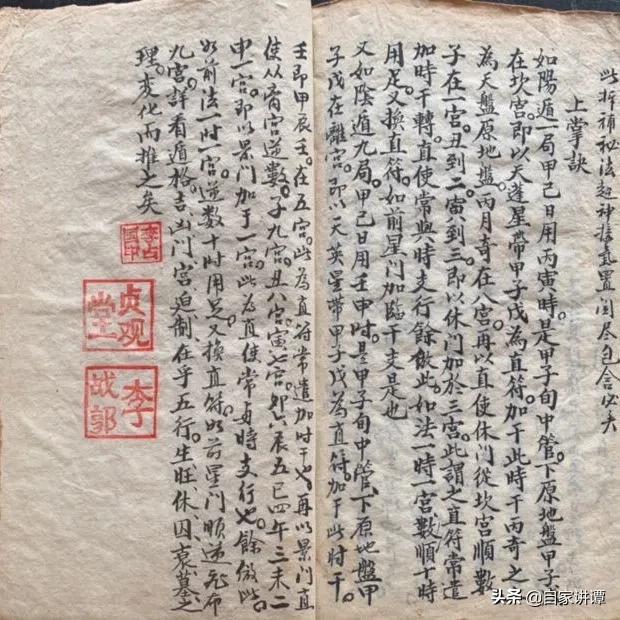 此拆補秘法超神接氣置閏尽包含
上掌訣
如陽遁一局甲己日用丙寅時。是甲子旬中管。下原地盤甲子
在坎宮。即以天蓬星帶甲子戊為直符。加于此時干丙奇之
為天盤原地盤。丙月奇在八宮。再以直使休門從坎宮順數
子在一宮。丑到二。寅八到三。即以休門加於三宮。此謂之直符常遣
加時干轉。直使常與時支行。餘倣此。如法一時一宮。數順十時
用足。又換直符。如前星門加臨干支是也
又如陰遁九局。甲己日用壬申时。是甲子旬中管。下原地盤甲
子戊在離宮。即以天英星帶甲子戊為直符。加于此时干。
壬即甲辰壬。在五宮。此為直符常遣加时干也。再以景門直
使從离宮逆數。子九宮。丑八宮。寅七宮。卯六辰五巳四午三未二
申一宮。即以景門加于一宮。此為直使常与時支行也。餘倣此。
如前法一时一宮。逆數十时用足。又換直符。如前星門順逆飛布
九宮。詳看遁格吉凶。門宮迫制。在乎五行。生旺休囚。衰墓之
理。变化而推之矣
李占國印
贞观堂一
李战郭
头条 @自家讲谭